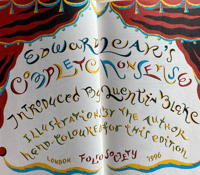 EDWARD LEAR'S
COMPLETE NONSENSE
Introduced By Quentin Blake
ILLUSTRATIONS BY THE AUTHOR
HAND-COLOURED FOR THIS EDITION
LONDON FOLIO SOCIETY 1996